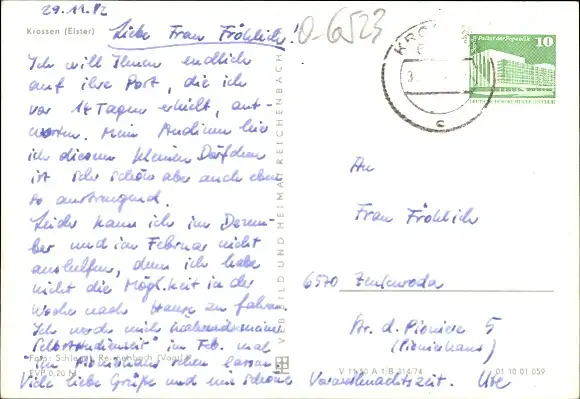 29.11.82
Krossen (Elster)
Liebe Frau Fröhlich!
Ich will Ihnen endlich
auf ihre Post, die ich
vor 14 Tagen erhielt, ant-
worten. Mein Studium hier
in diesem kleinen Dörfchen
ist sehr schön aber auch eben
so anstrengend.
Leider kann ich im Dezem-
ber und im Februar nicht
aushelfen, denn ich habe
nicht die Möglichkeit in der
Woche nach Hause zu fahren.
Ich werde mich während meines
"Selbststudiums" im Feb. mal
im Pionierhaus sehen lassen.
Viele liebe Grüße und eine schöne Vorweihnachtszeit. Ute
Foto: Schlegel, Reichenbach (Vogtl.)
EVP 0,20 M
VEB BILD UND HEIMAT REICHENBACH
0-6523
KRO
c
Palast der Republik
10
An
Frau Fröhlich
6570 Zeulenroda
Str. d. Pioniere 5
(Pionierhaus)
V 11 50 A 1/B 314/74
01 10 01 059